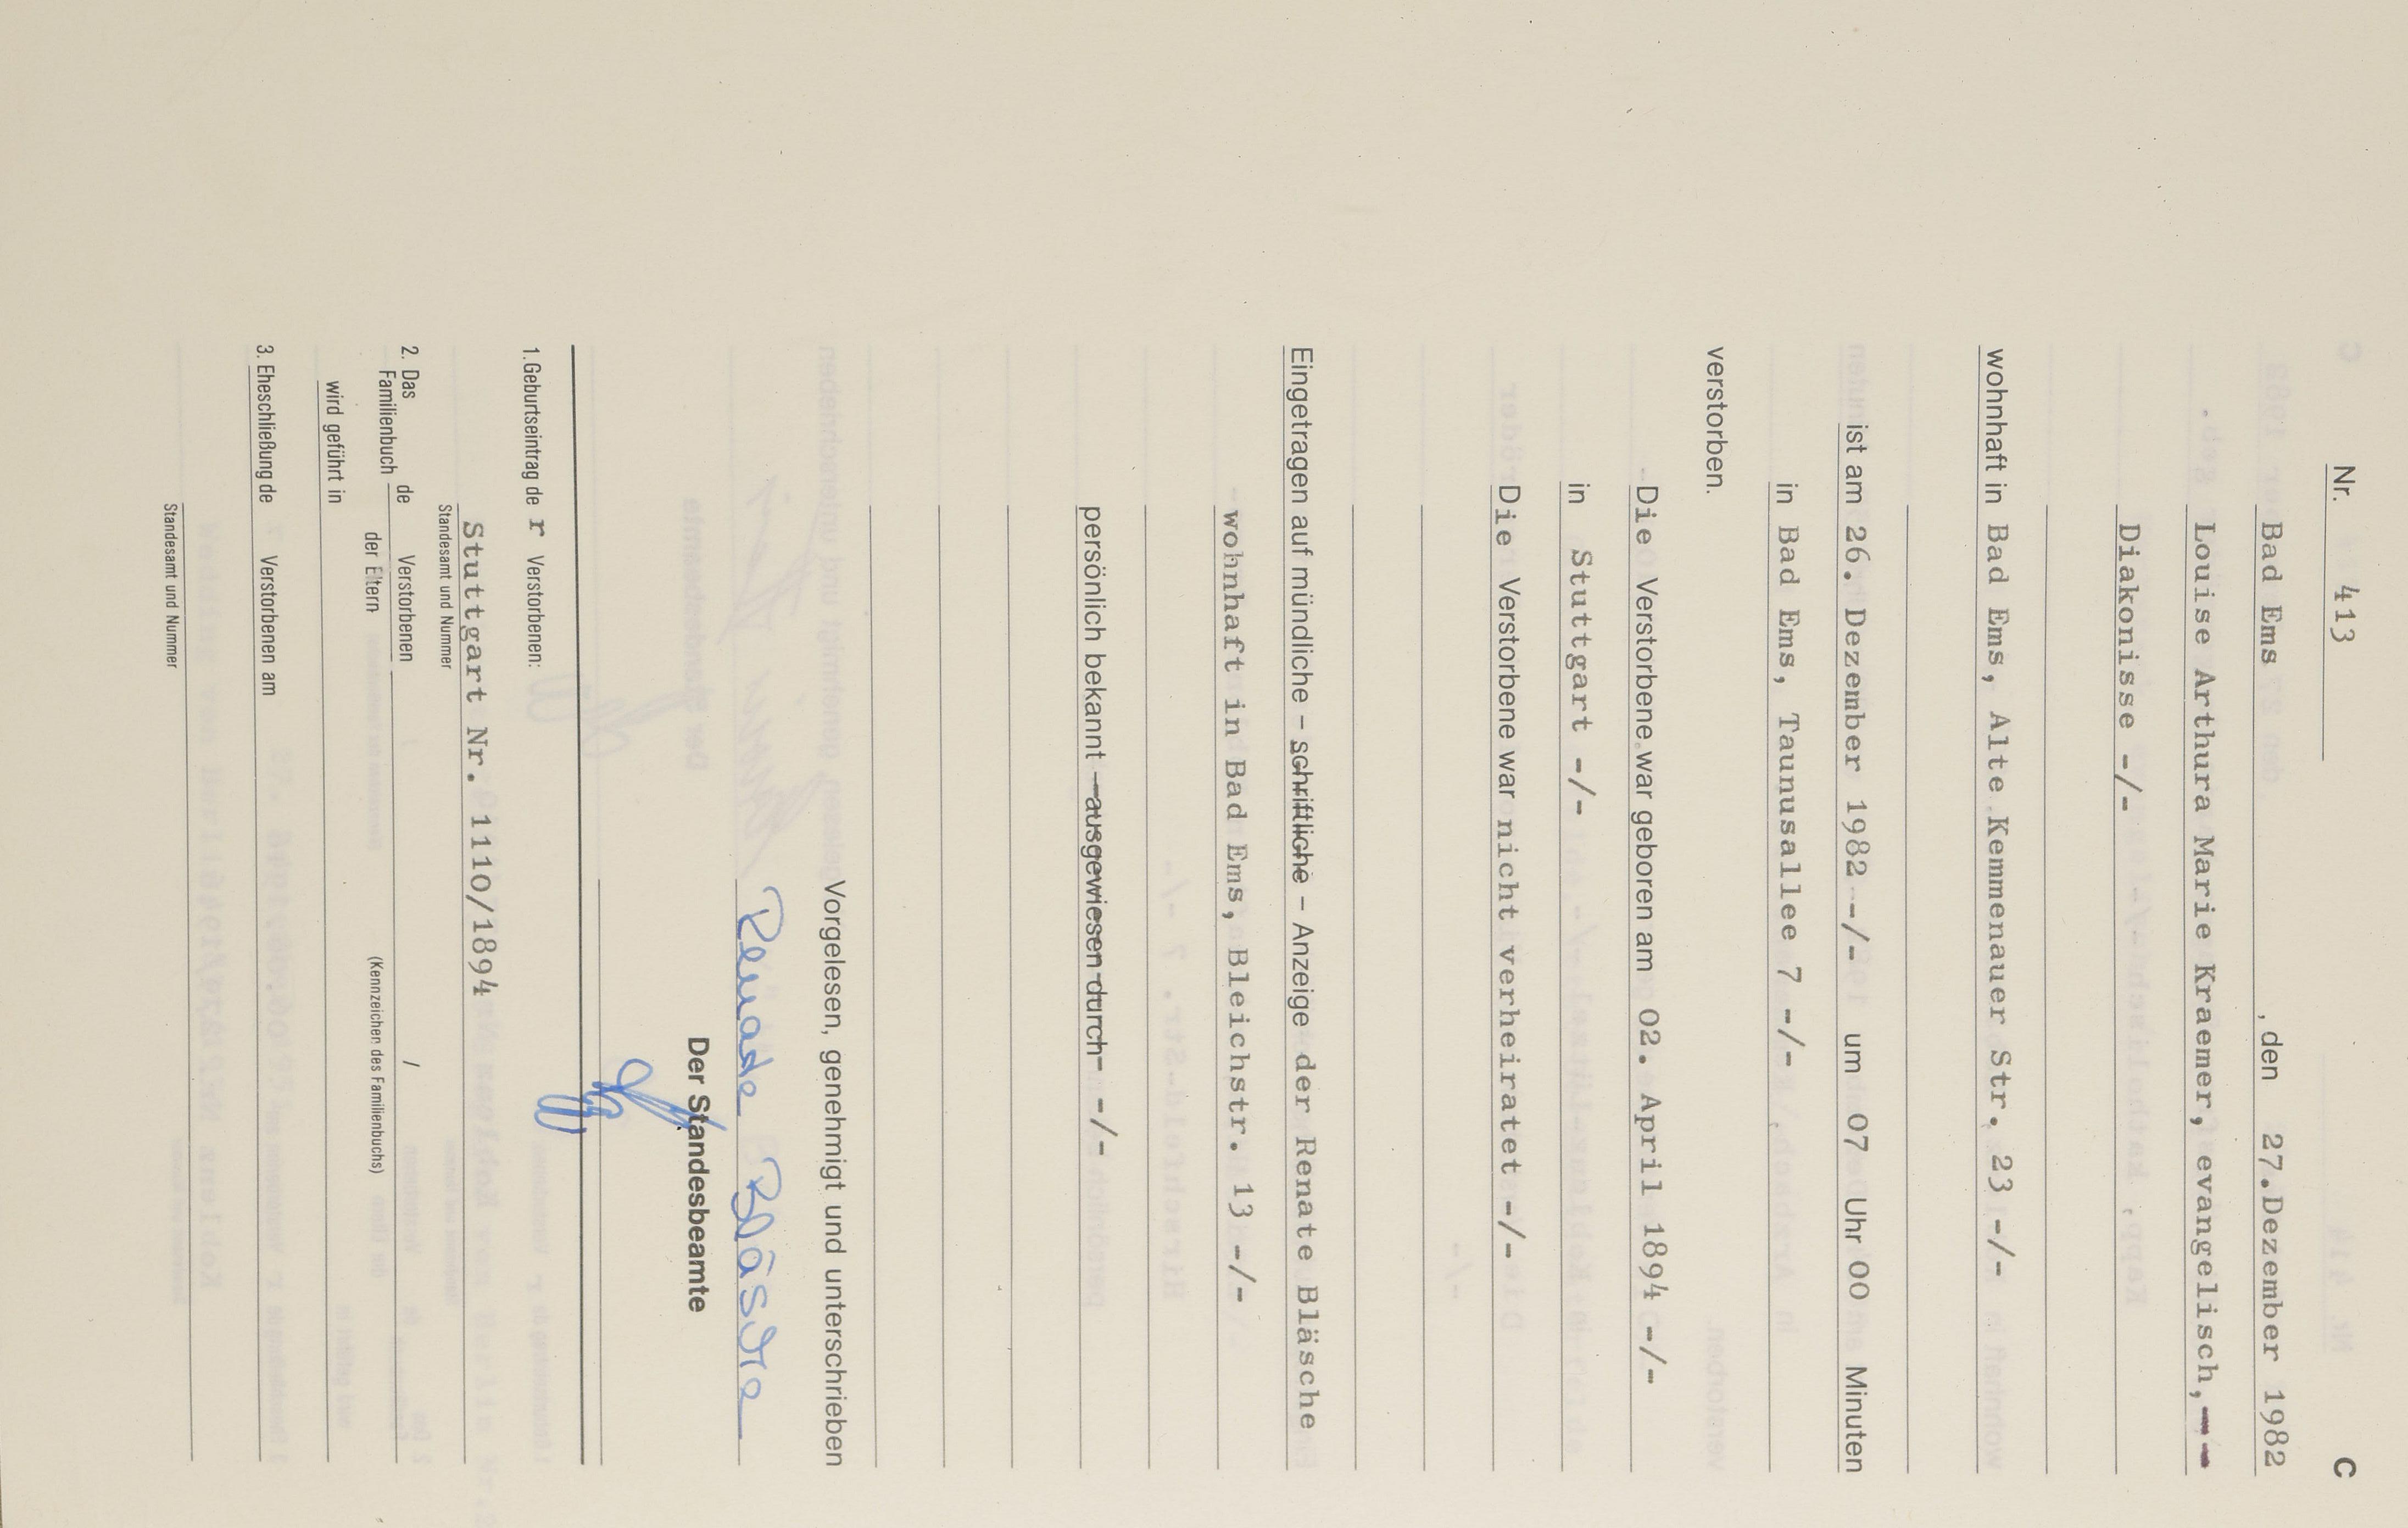 Nr. 413 C
Bad Ems , den 27.Dezember 1982
Louise Arthura Marie Kraemer, evangelisch,--
Diakonisse -/-
wohnhaft in Bad Ems, Alte Kemmenauer Str. 23 -/-
ist am 26. Dezember 1982 -/- um 07 Uhr 00 Minuten
in Bad Ems, Taunusallee 7 -/-
verstorben.
Die Verstorbene war geboren am 02. April 1894 -/-
in Stuttgart -/-
Die Verstorbene war nicht verheiratet -/-
Eingetragen auf mündliche – schriftliche – Anzeige der Renate Bläsche
wohnhaft in Bad Ems, Bleichstr. 13 -/-
persönlich bekannt – ausgewiesen durch -/-
Vorgelesen, genehmigt und unterschrieben
Renate Bläsche
Der Standesbeamte
1.Geburtseintrag de r Verstorbenen:
Stuttgart Nr. 1110/1894
Standesamt und Nummer
2. Das Familienbuch de Verstorbenen /
der Eltern (Kennzeichen des Familienbuchs)
wird geführt in
3. Eheschließung de Verstorbenen am
Standesamt und Nummer